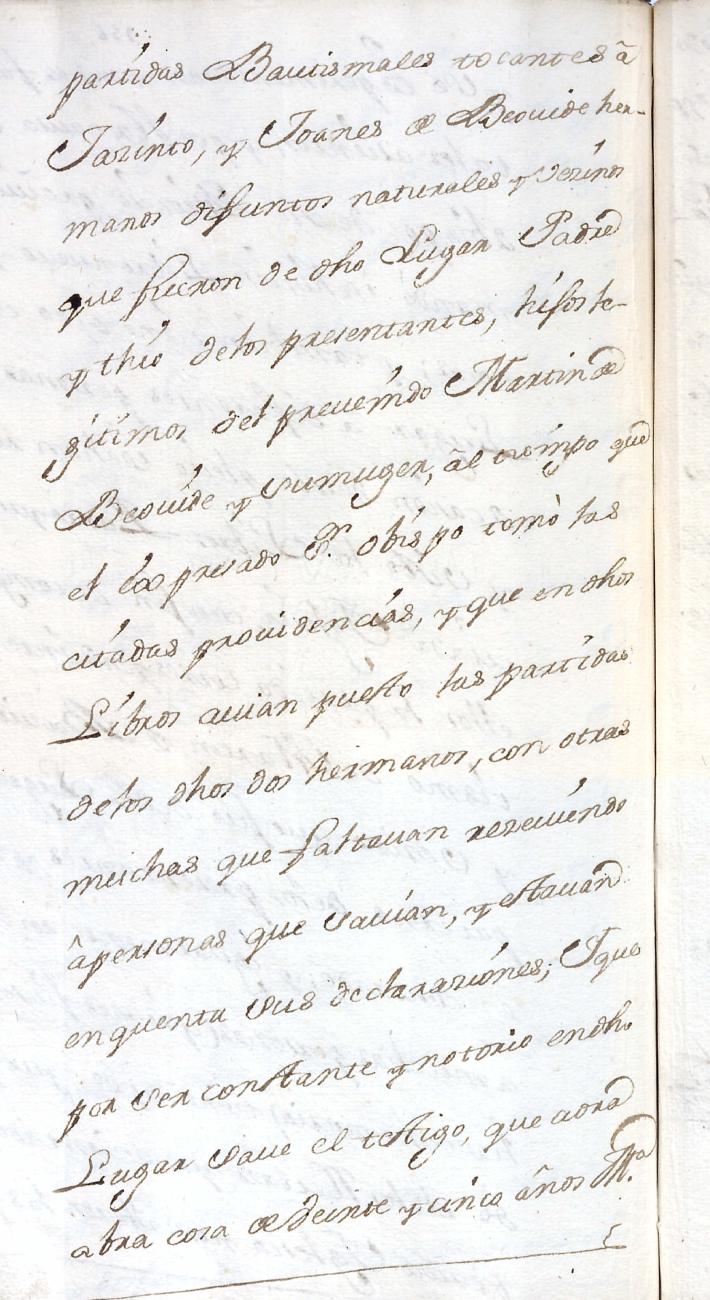 partidas Bautismales tocantes â
Jazinto, y Joanes de Beouide her-
manos difuntos naturales y vezinos
que fueron de dho Lugar Padre
y thio delos presentantes, hijos le-
gitimos del preuenido Martin de
Beouide y sumuger, âl tiempo que
el expresado Sr. obispo tomò las
citadas prouidencias, y que en dhos
Libros auian puesto las partidas
delos dhos dos hermanos, con otras
muchas que faltauan reziuiendo
âpersonas que sauian, y estauan
enquenta sus declaraziones; Y que
por ser constante y notorio endho
Lugar saue el testigo, que aora
abra cosa de veinte y cinco años